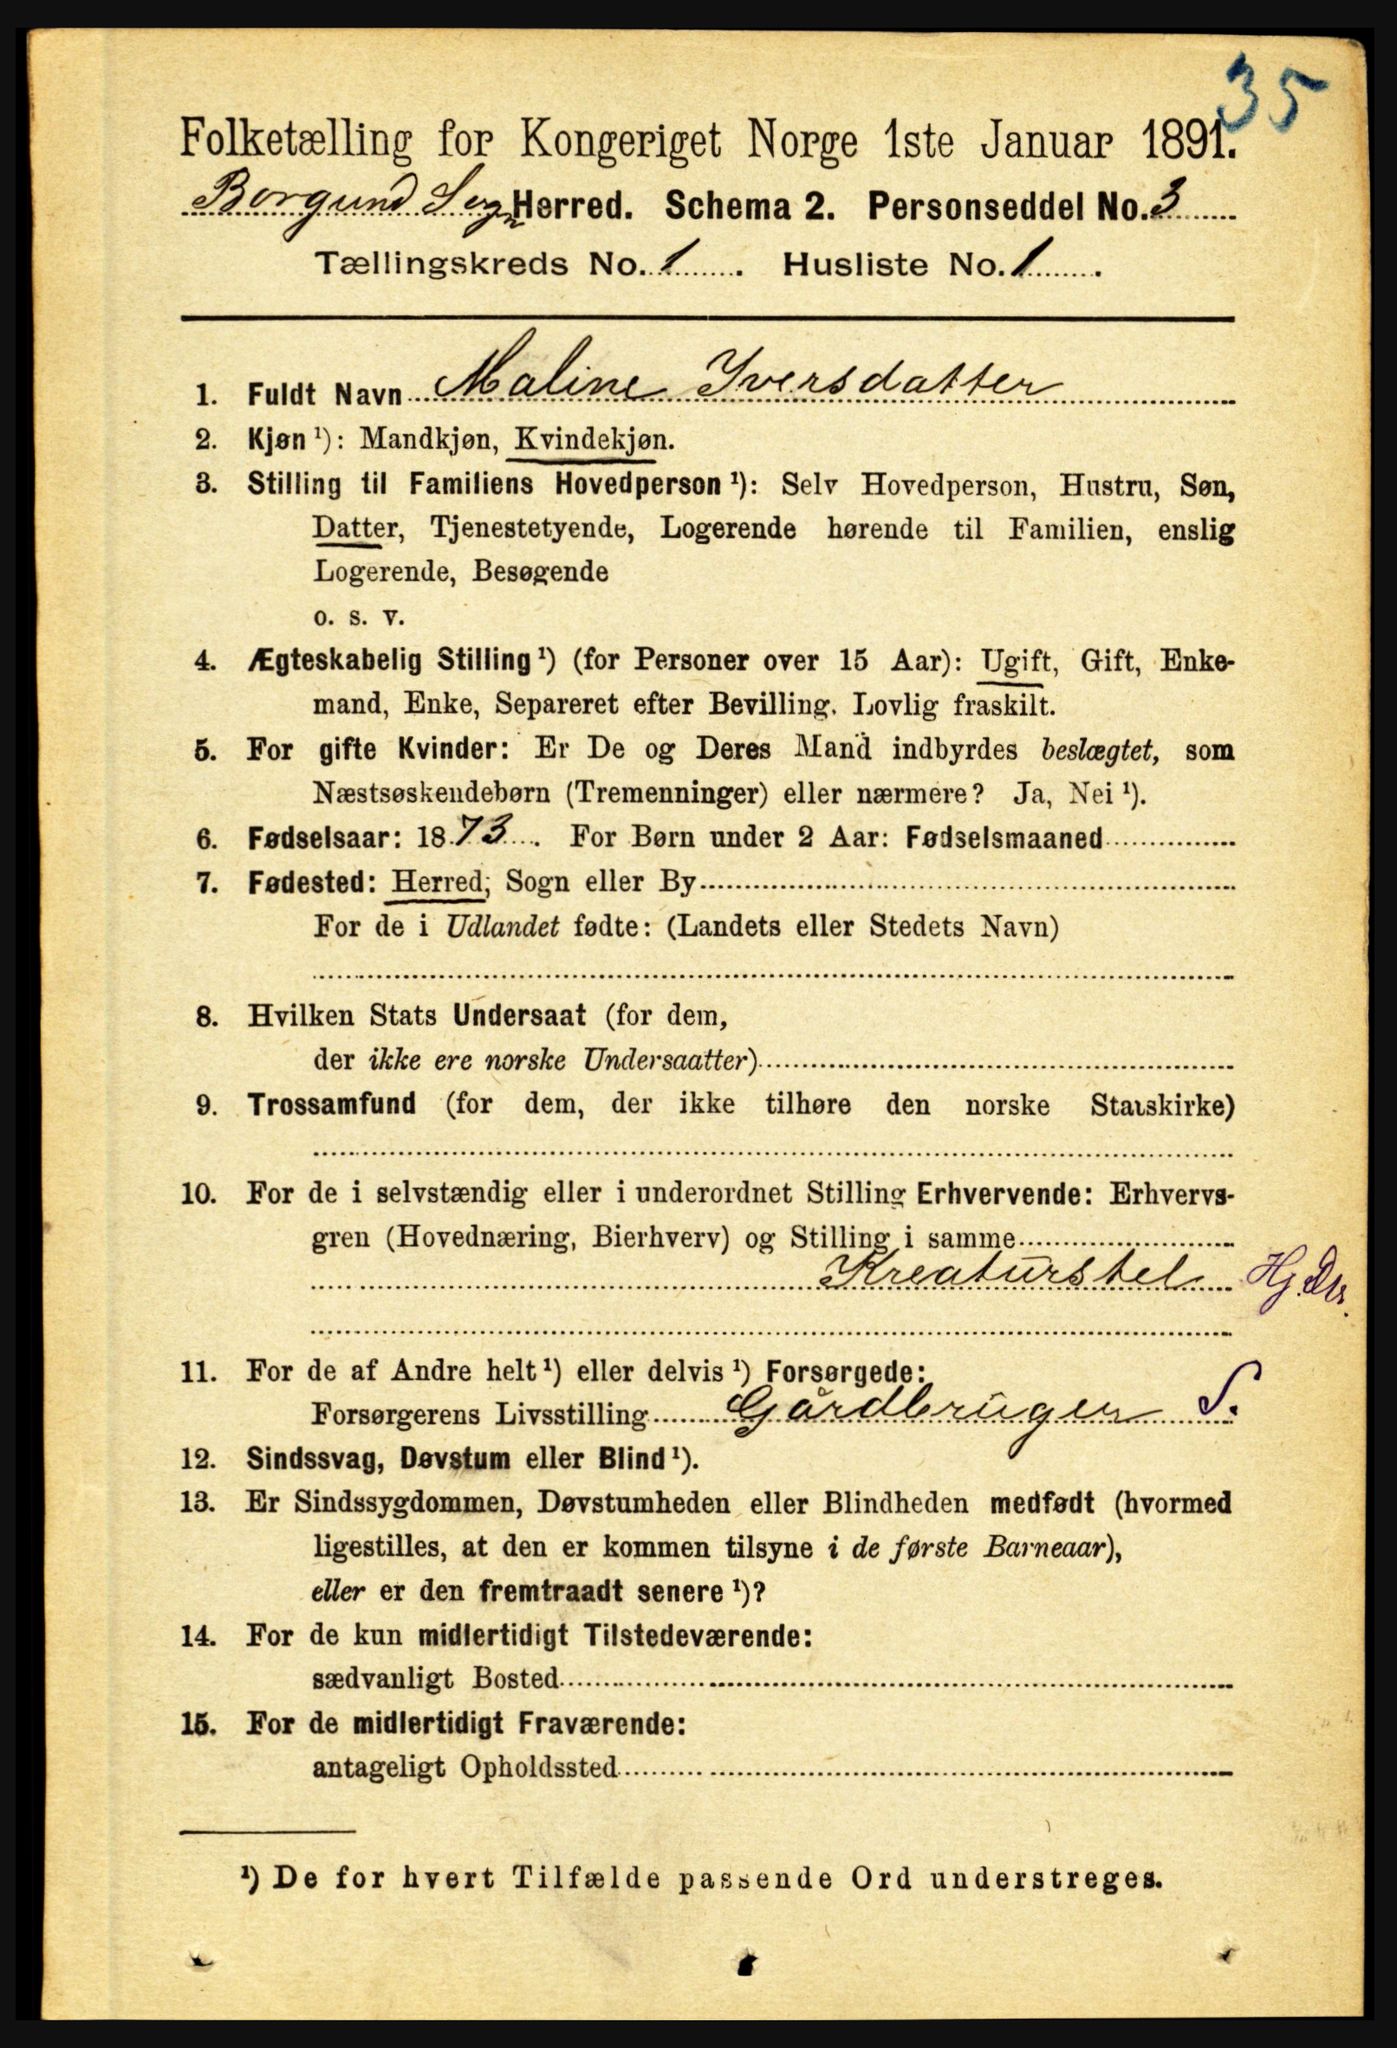 35
Folketælling for Kongeriget Norge 1ste Januar 1891.
Borgund Sogn Herred. Schema 2. Personseddel No. 3
Tællingskreds No. 1. Husliste No. 1.
1. Fuldt Navn Maline Iversdatter
2. Kjøn ¹): Mandkjøn, Kvindekjøn.
3. Stilling til Familiens Hovedperson ¹): Selv Hovedperson, Hustru, Søn,
Datter, Tjenestetyende, Logerende hørende til Familien, enslig
Logerende, Besøgende
o. s. v.
4. Ægteskabelig Stilling ¹) (for Personer over 15 Aar): Ugift, Gift, Enke-
mand, Enke, Separeret efter Bevilling. Lovlig fraskilt.
5. For gifte Kvinder: Er De og Deres Mand indbyrdes beslægtet, som
Næstsøskendebørn (Tremenninger) eller nærmere? Ja, Nei ¹).
6. Fødselsaar: 1873. For Børn under 2 Aar: Fødselsmaaned
7. Fødested: Herred; Sogn eller By
For de i Udlandet fødte: (Landets eller Stedets Navn)
8. Hvilken Stats Undersaat (for dem,
der ikke ere norske Undersaatter)
9. Trossamfund (for dem, der ikke tilhøre den norske Statskirke)
10. For de i selvstændig eller i underordnet Stilling Erhvervende: Erhvervs-
gren (Hovednæring, Bierhverv) og Stilling i samme
Kreaturstel Hj. Dtr.
11. For de af Andre helt ¹) eller delvis ¹) Forsørgede:
Forsørgerens Livsstilling Gårdbruger S.
12. Sindssvag, Døvstum eller Blind ¹).
13. Er Sindssygdommen, Døvstumheden eller Blindheden medfødt (hvormed
ligestilles, at den er kommen tilsyne i de første Barneaar),
eller er den fremtraadt senere ¹)?
14. For de kun midlertidigt Tilstedeværende:
sædvanligt Bosted
15. For de midlertidigt Fraværende:
antageligt Opholdssted
¹) De for hvert Tilfælde passende Ord understreges.